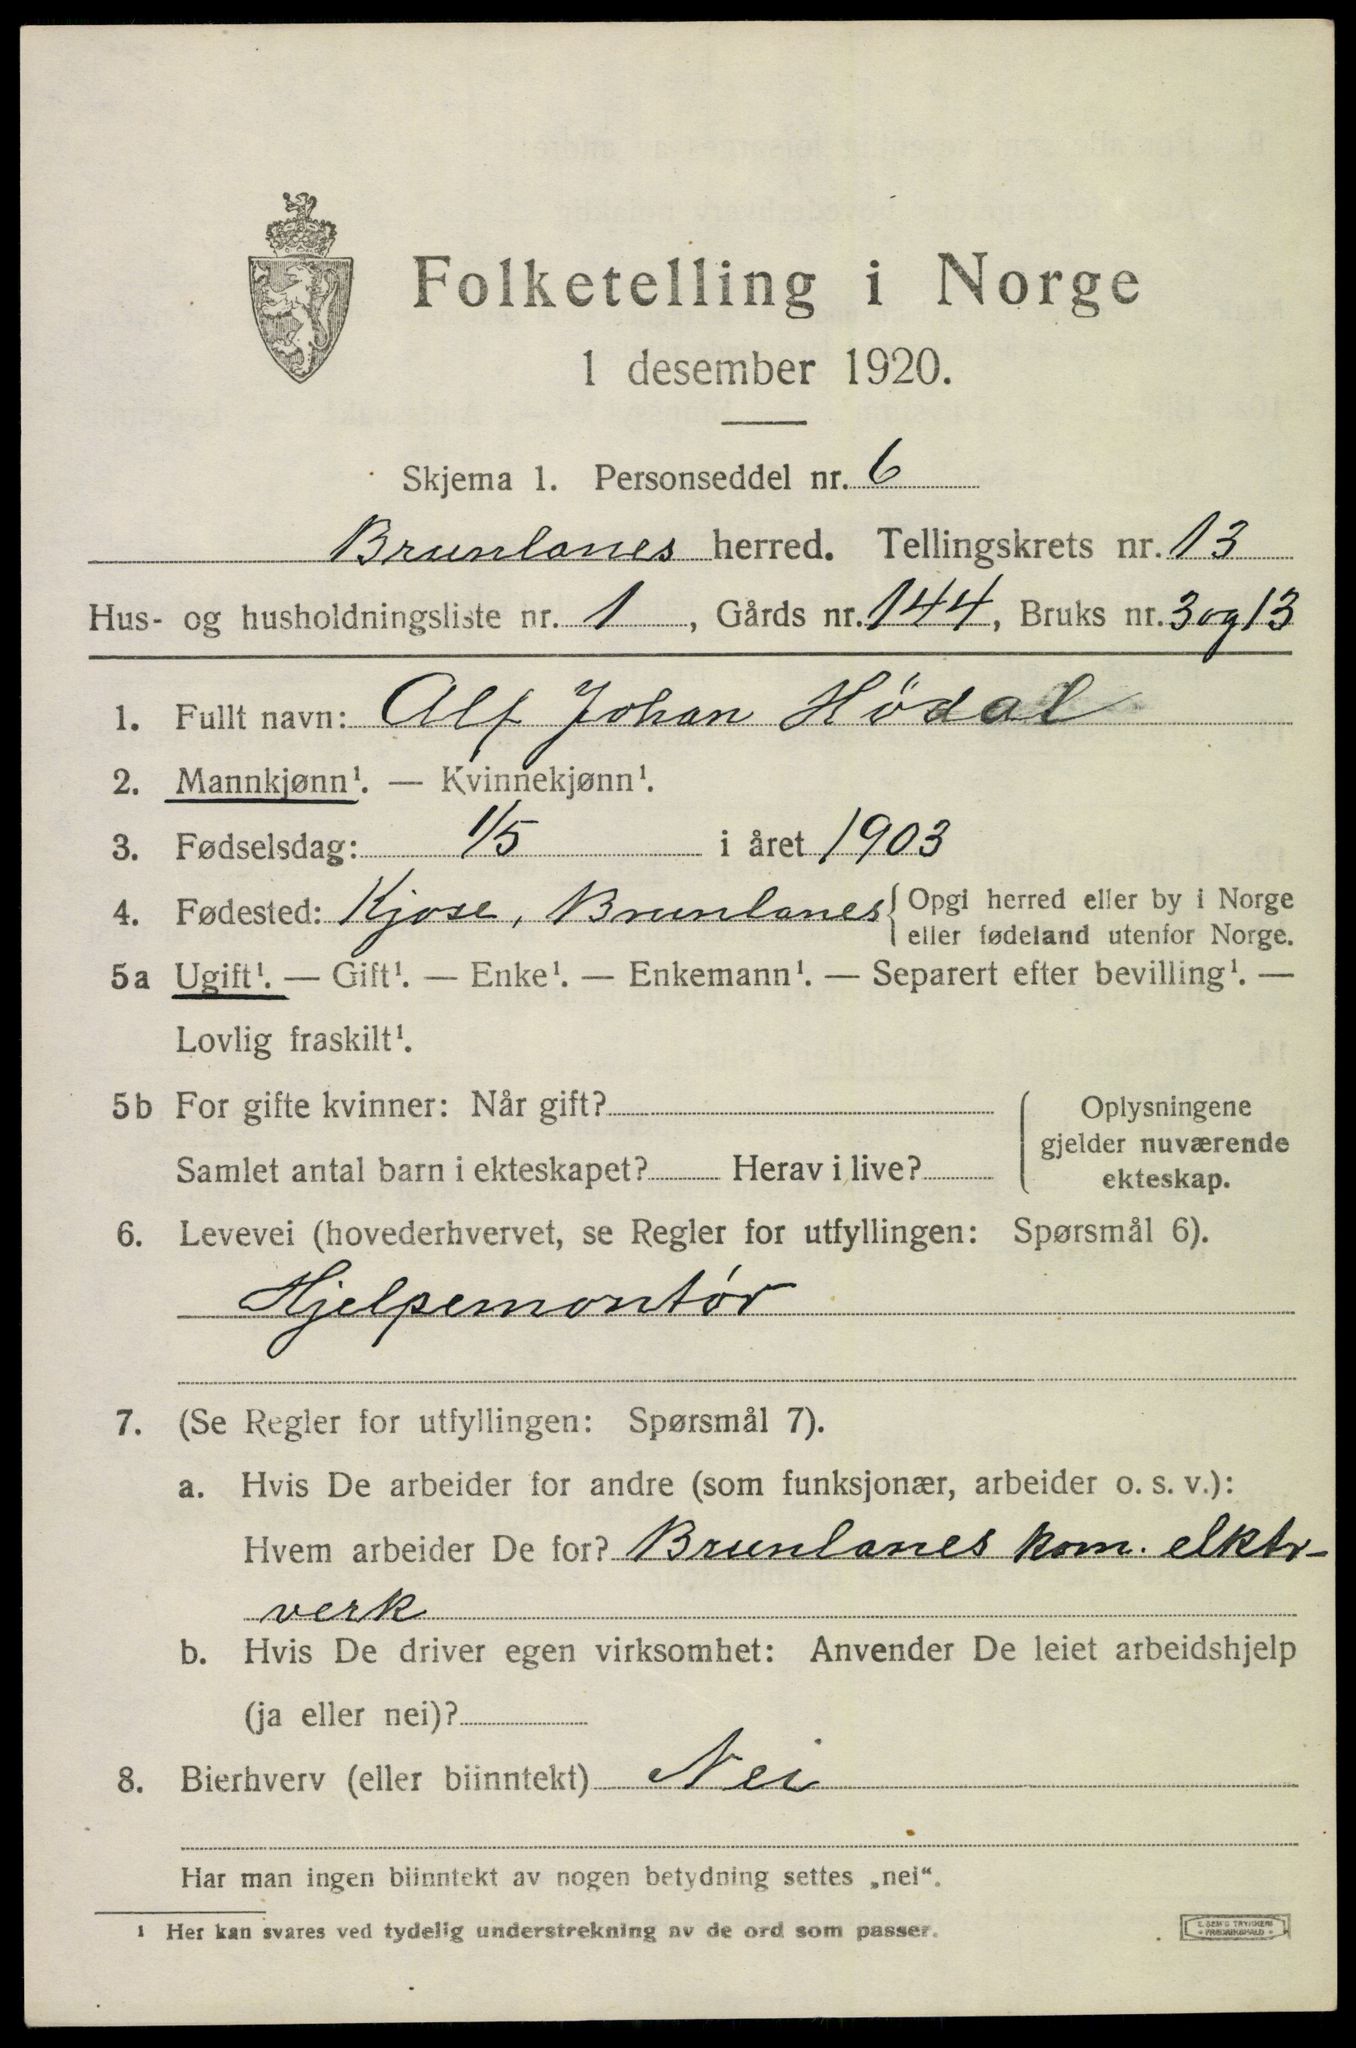 Folketelling i Norge
1 desember 1920.
Skjema 1. Personseddel nr. 6
Brunlanes herred. Tellingskrets nr. 13
Hus- og husholdningsliste nr. 1, Gårds nr. 144, Bruks nr. 3 og 13
1. Fullt navn: Alf Johan Hödal
2. Mannkjønn¹. — Kvinnekjønn¹.
3. Fødselsdag: 1/5 i året 1903
4. Fødested: Kjose, Brunlanes { Opgi herred eller by i Norge
eller fødeland utenfor Norge.
5a Ugift¹. — Gift¹. — Enke¹. — Enkemann¹. — Separert efter bevilling¹. —
Lovlig fraskilt¹.
5b For gifte kvinner: Når gift?
Samlet antal barn i ekteskapet? Herav i live?
Oplysningene
gjelder nuværende
ekteskap.
6. Levevei (hovederhvervet, se Regler for utfyllingen: Spørsmål 6).
Hjelpemontör
7. (Se Regler for utfyllingen: Spørsmål 7).
a. Hvis De arbeider for andre (som funksjonær, arbeider o. s. v.):
Hvem arbeider De for? Brunlanes kom. elktr-
verk
b. Hvis De driver egen virksomhet: Anvender De leiet arbeidshjelp
(ja eller nei)?
8. Bierhverv (eller biinntekt) Nei
Har man ingen biinntekt av nogen betydning settes „nei“.
¹ Her kan svares ved tydelig understrekning av de ord som passer.
E. SEM'S TRYKKERI
FREDRIKSHALD